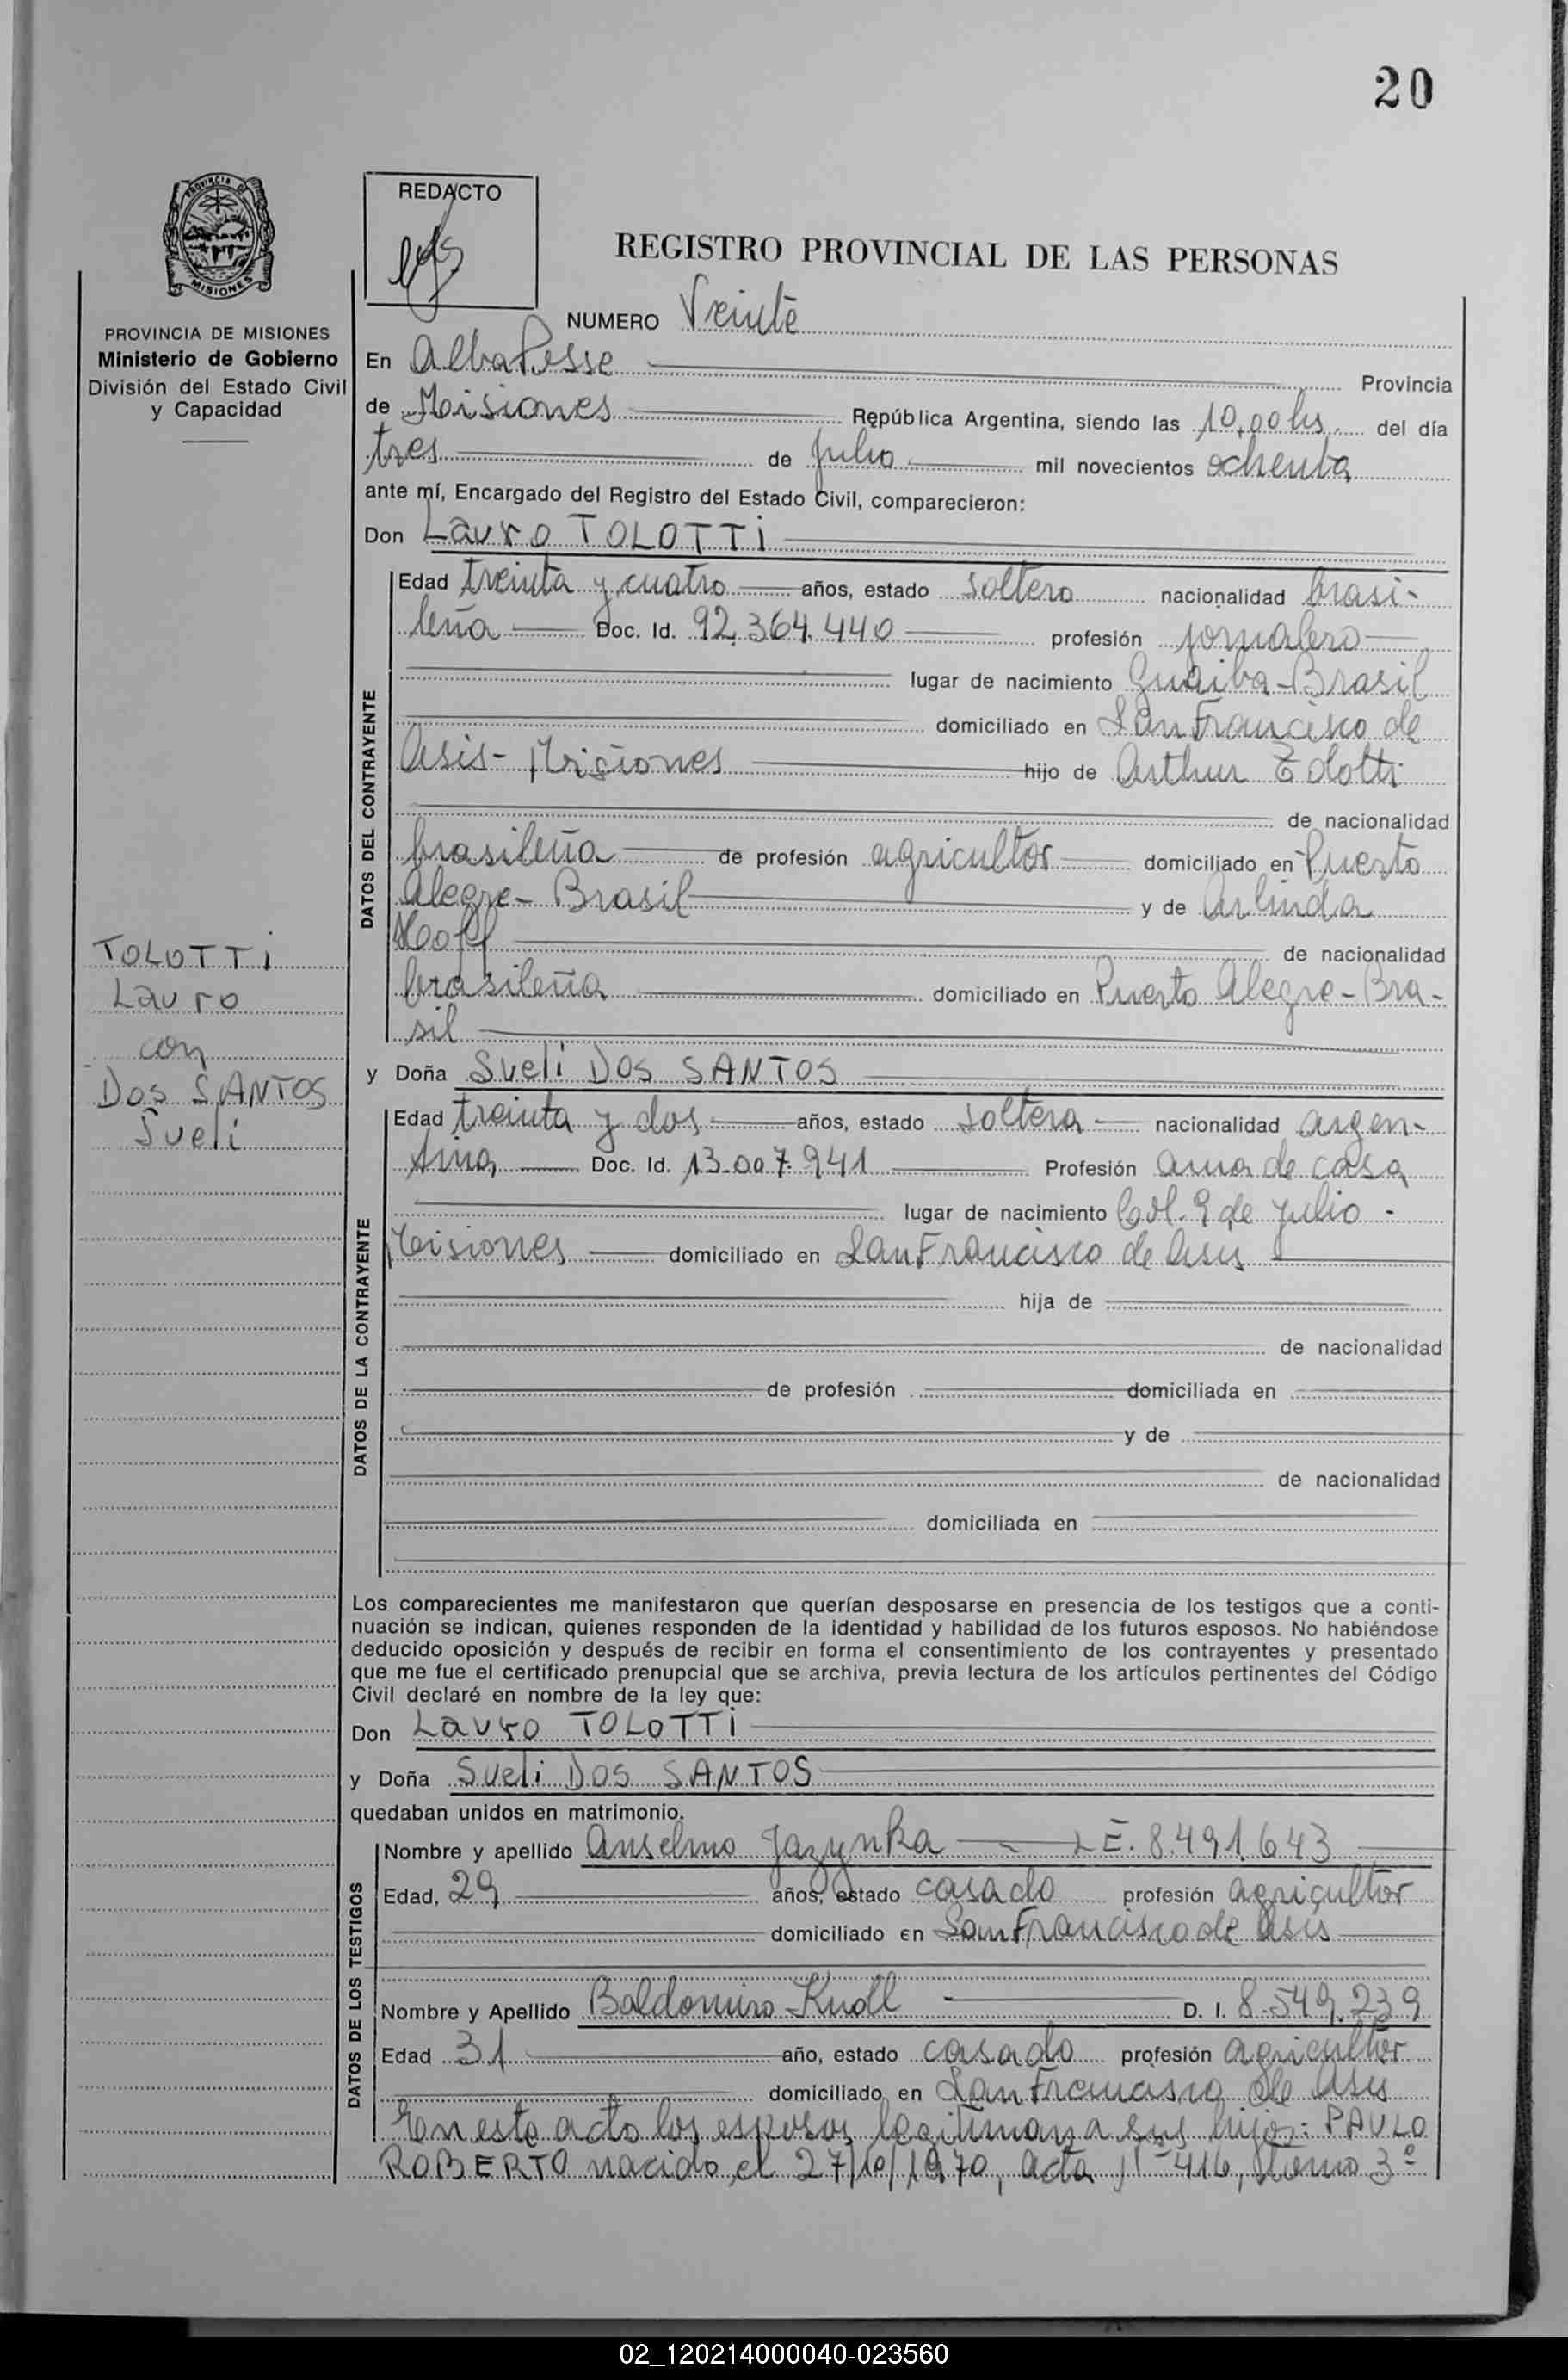 20
PROVINCIA DE
MISIONES
PROVINCIA DE MISIONES
Ministerio de Gobierno
División del Estado Civil
y Capacidad
TOLOTTi
Lauro
con
DOS SANTOS
Sueli
REDACTO
REGISTRO PROVINCIAL DE LAS PERSONAS
NUMERO Veinte
En Alba Posse Provincia
de Misiones República Argentina, siendo las 10,00 hs. del día
tres de Julio mil novecientos ochenta
ante mí, Encargado del Registro del Estado Civil, comparecieron:
Don Lauro TOLOTTi
DATOS DEL CONTRAYENTE
Edad treinta y cuatro años, estado soltero nacionalidad brasi-
leña Doc. Id. 92.364.440 profesión jornalero
lugar de nacimiento Guaiba-Brasil
domiciliado en San Francisco de
Asis- Misiones hijo de Arthur Tolotti
de nacionalidad
brasileña de profesión agricultor domiciliado en Puerto
Alegre- Brasil y de Arlinda
Hoff de nacionalidad
brasileña domiciliado en Puerto Alegre-Bra-
sil
y Doña Sueli DOS SANTOS
DATOS DE LA CONTRAYENTE
Edad treinta y dos años, estado soltera nacionalidad argen-
tina Doc. Id. 13.007.941 Profesión ama de casa
lugar de nacimiento Col. 9 de Julio -
Misiones domiciliado en San Francisco de Asis
hija de
de nacionalidad
de profesión domiciliada en
y de
de nacionalidad
domiciliada en
Los comparecientes me manifestaron que querían desposarse en presencia de los testigos que a conti-
nuación se indican, quienes responden de la identidad y habilidad de los futuros esposos. No habiéndose
deducido oposición y después de recibir en forma el consentimiento de los contrayentes y presentado
que me fue el certificado prenupcial que se archiva, previa lectura de los artículos pertinentes del Código
Civil declaré en nombre de la ley que:
Don Lauro TOLOTTi
y Doña Sueli DOS SANTOS
quedaban unidos en matrimonio.
DATOS DE LOS TESTIGOS
Nombre y apellido Anselmo Jazynka L.E. 8.491.643
Edad, 29 años, estado casado profesión agricultor
domiciliado en San Francisco de Asis
Nombre y Apellido Baldomiro Knoll D. I. 8.549.239
Edad 31 año, estado casado profesión agricultor
domiciliado en San Francisco de Asis
En este acto los esposos legitiman a sus hijos: PAULO
ROBERTO nacido el 27/10/1970, acta Nº 416, Tomo 3º
02_120214000040-023560